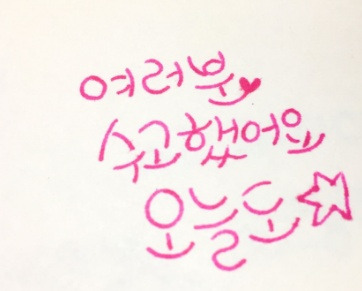 여러분♥
수고했어요
오늘도☆